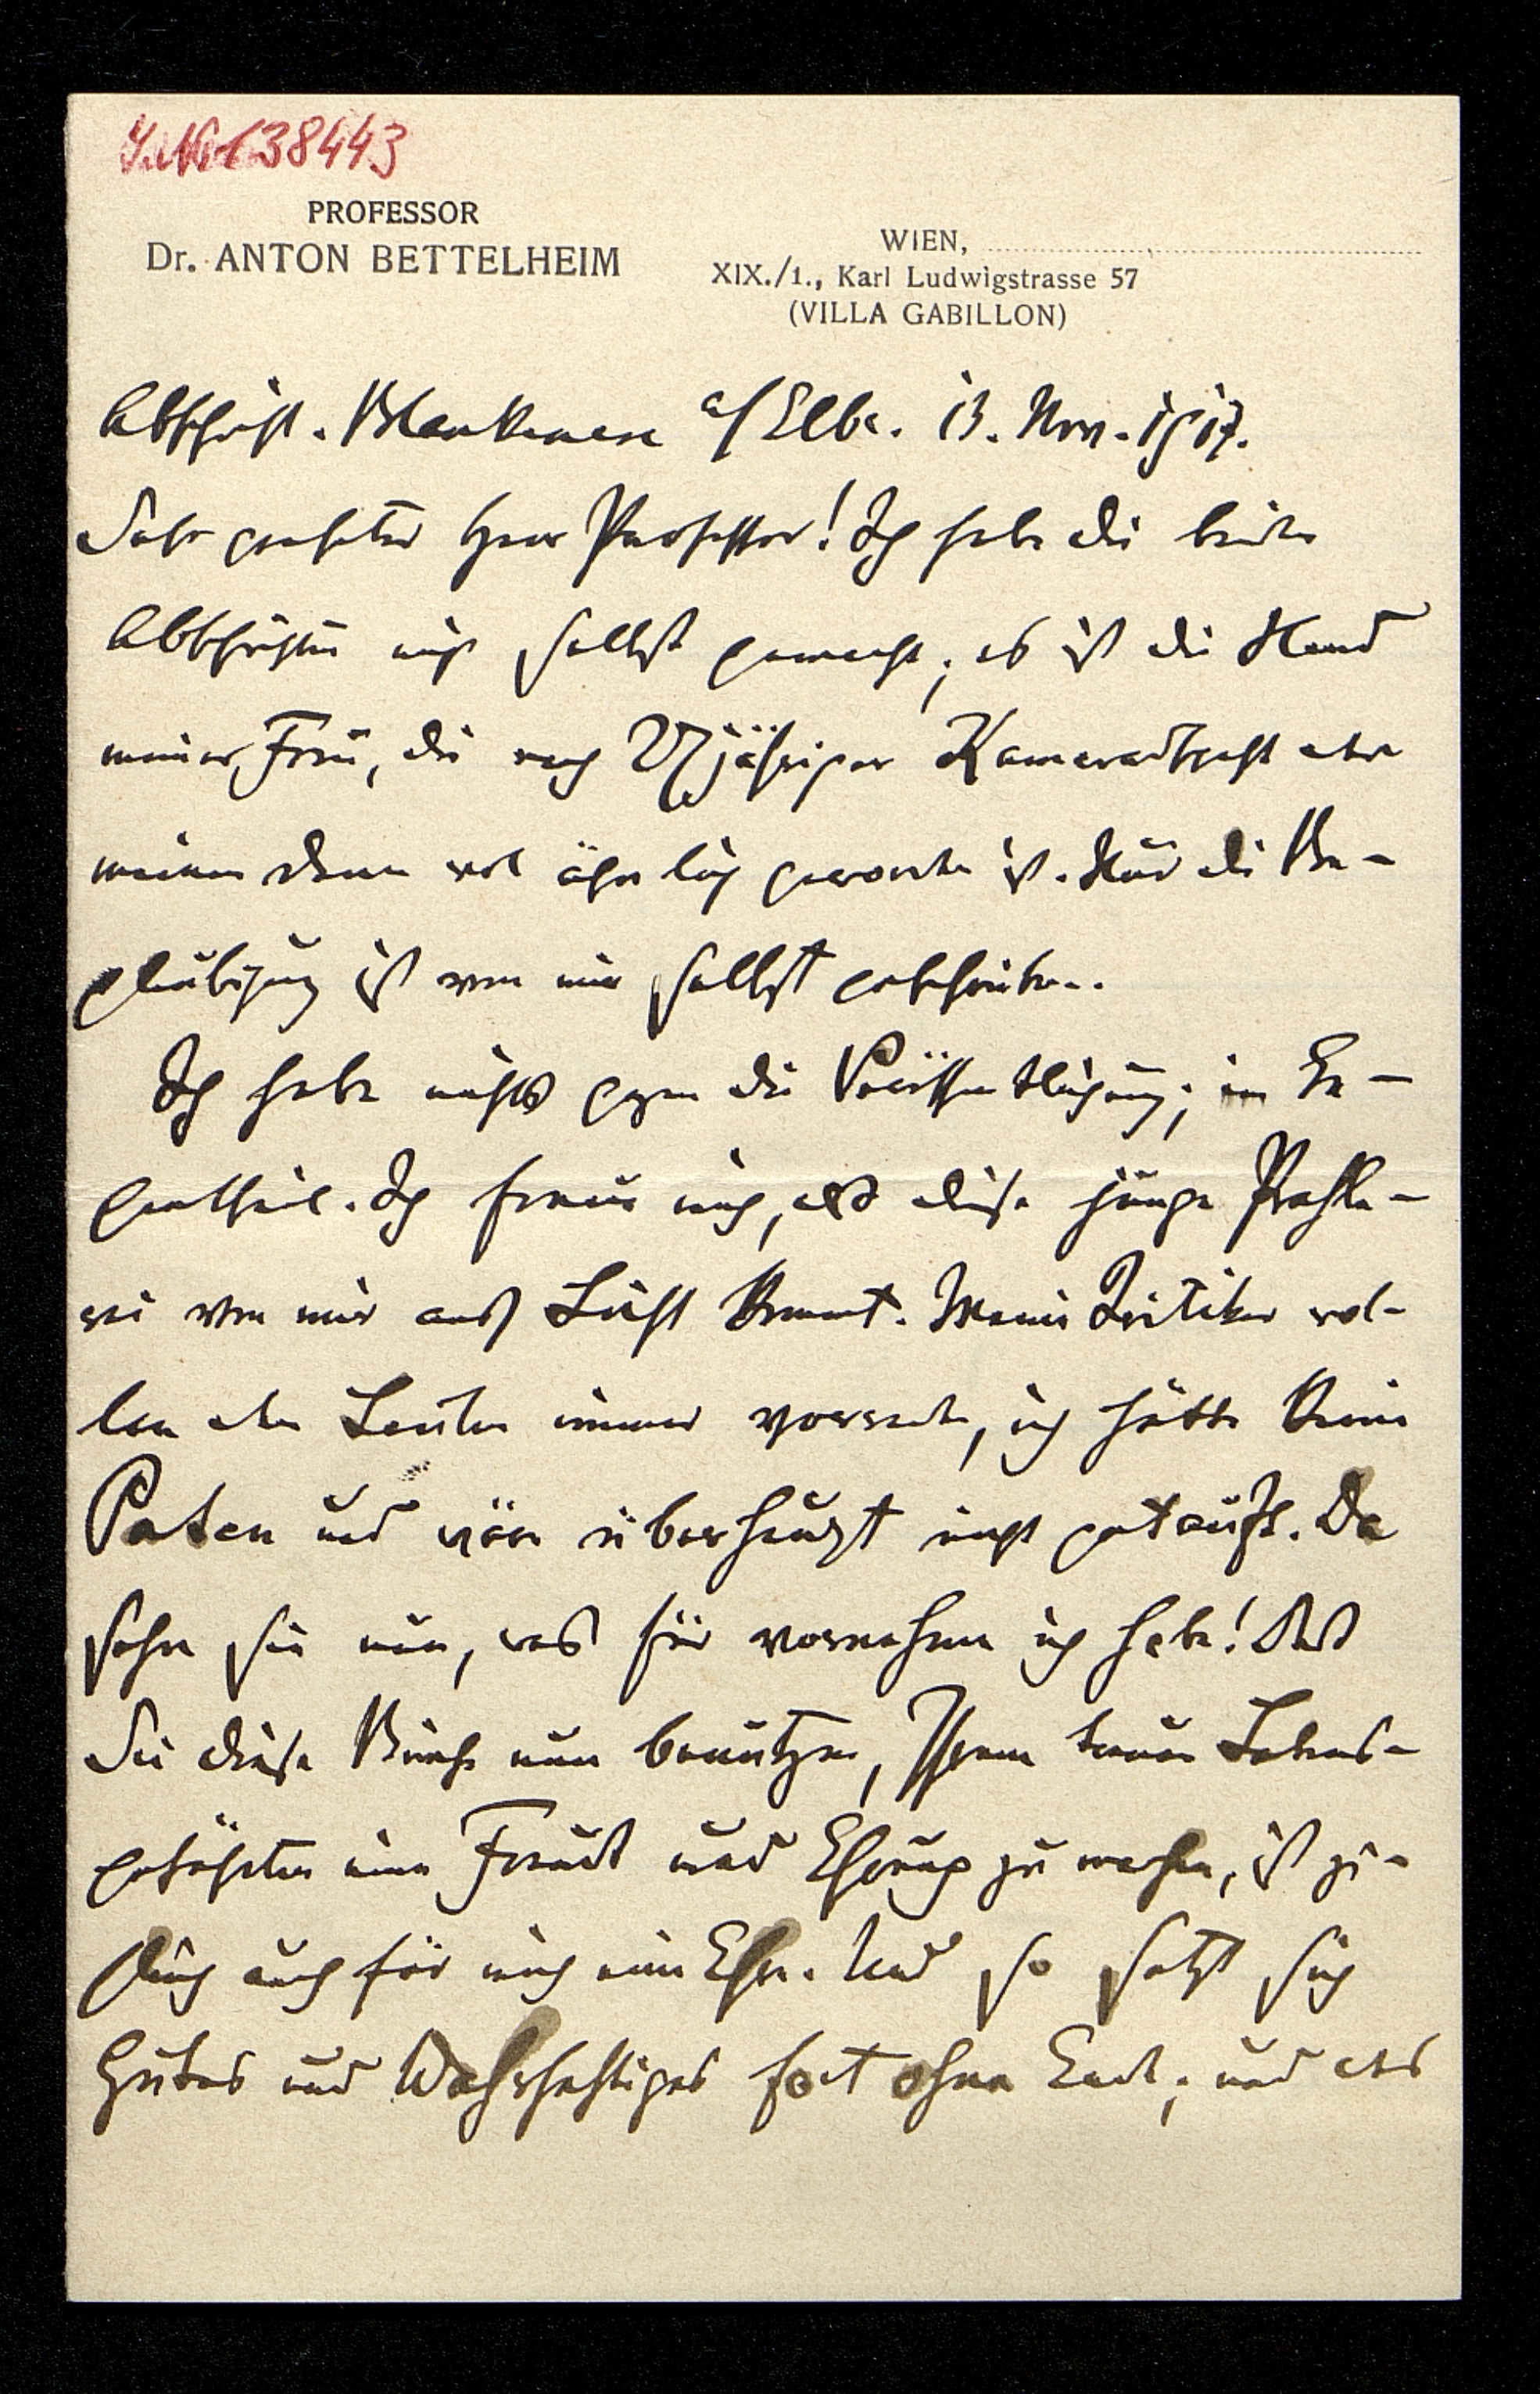 J.N. 138443
PROFESSOR
Dr. ANTON BETTELHEIM
WIEN,
XIX./1., Karl Ludwigstrasse 57
(VILLA GABILLON)
Abschrift. Blankenese a/Elbe. 13. Nov. 1917.
Sehr geehrter Herr Professor! Ich habe die beiden
Abschriften nicht selbst gemacht; es ist die Hand
meiner Frau, die nach 27jähriger Kameradschaft der
meinen denn wol ähnlich geworden ist. Nur die Be-
glaubigung ist von mir selbst geschrieben.
Ich habe nichts gegen die Veröffentlichung; im Ge-
gentheil. Ich freue mich, daß diese junge Prahle-
rei von mir ans Licht kommt. Meine Kritiker wol-
len den Leuten immer vorreden, ich hätte keine
Paten und wäre überhaupt nicht getauft. Da
sehen sie nun, was für vornehme ich habe! Daß
Sie diese Briefe nun benützen, Ihrem treuen Lebens-
gefährten eine Freude und Ehrung zu machen, ist zu-
gleich auch für mich eine Ehre. Und so setzt sich
Gutes und Wahrhaftiges fort ohne Ende; und das